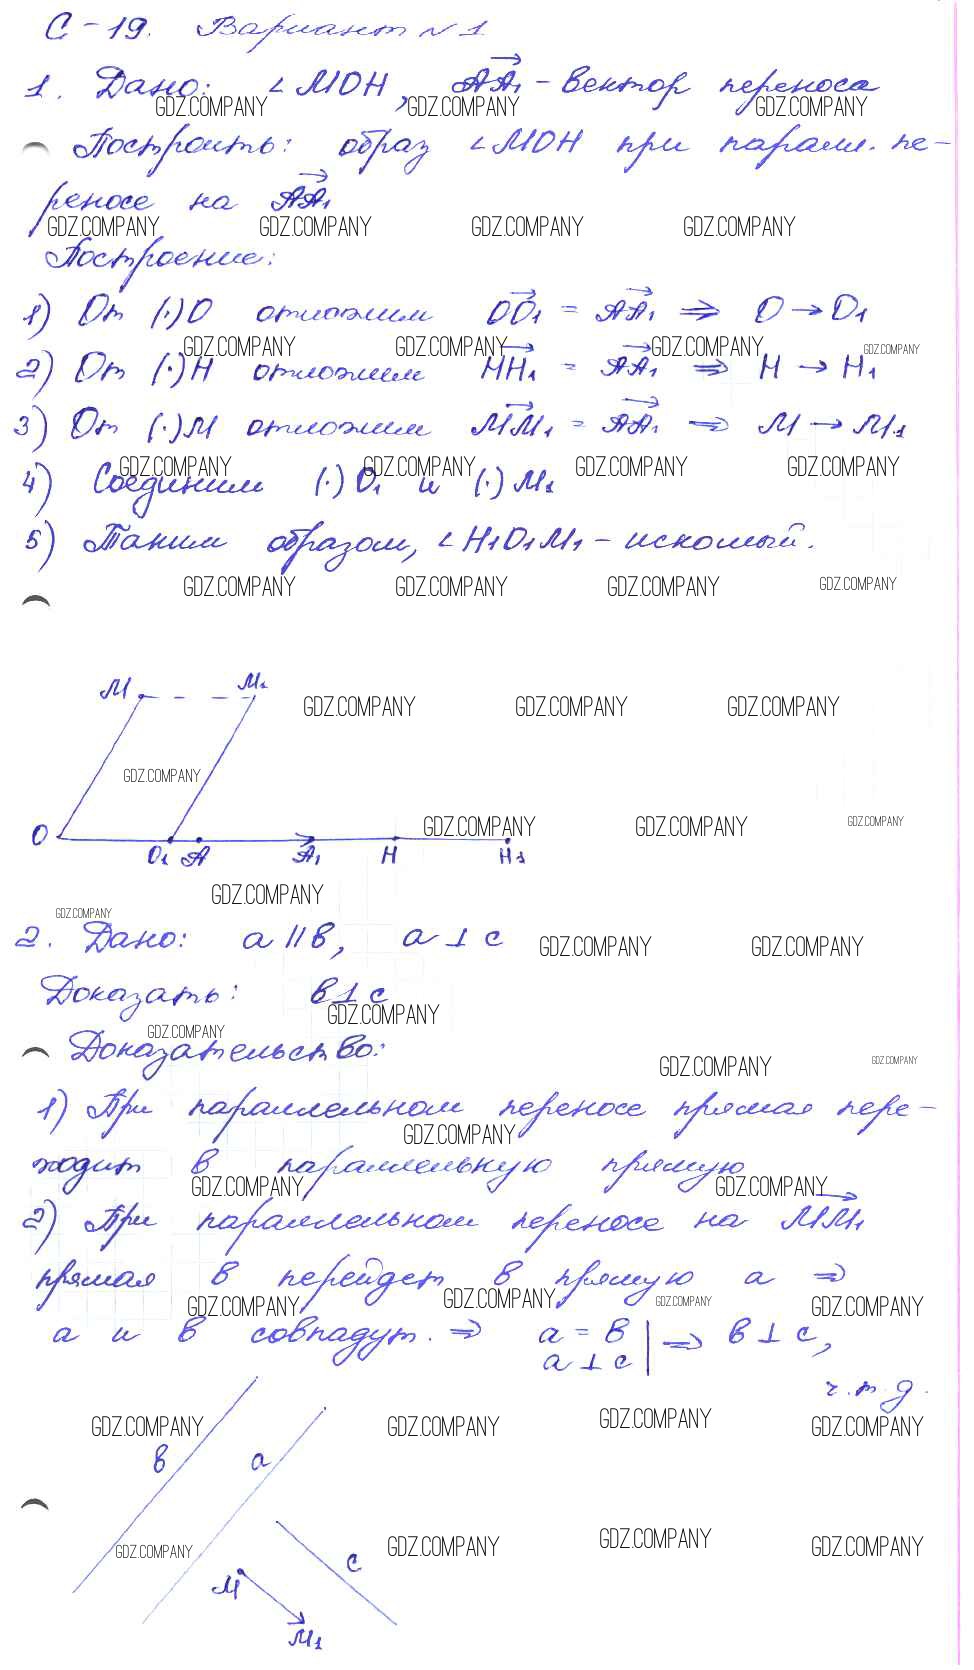 С-19. Вариант №1
1. Дано: ∠МОН, АА₁ - вектор переноса
GDZ.COMPANY GDZ.COMPANY GDZ.COMPANY
Построить: образ ∠МОН при паралл. пе-
реносе на АА₁
GDZ.COMPANY GDZ.COMPANY GDZ.COMPANY GDZ.COMPANY
Построение:
1) От (·)О отложим ОО₁ = АА₁ ⇒ О → О₁
GDZ.COMPANY GDZ.COMPANY GDZ.COMPANY GDZ.COMPANY
2) От (·)Н отложим НН₁ = АА₁ ⇒ Н → Н₁
3) От (·)М отложим ММ₁ = АА₁ ⇒ М → М₁
GDZ.COMPANY GDZ.COMPANY GDZ.COMPANY GDZ.COMPANY
4) Соединим (·)О₁ и (·)М₁
5) Таким образом, ∠Н₁О₁М₁ - искомый.
GDZ.COMPANY GDZ.COMPANY GDZ.COMPANY GDZ.COMPANY
М М₁
GDZ.COMPANY GDZ.COMPANY GDZ.COMPANY
GDZ.COMPANY
GDZ.COMPANY GDZ.COMPANY GDZ.COMPANY
О О₁ А А₁ Н Н₁
GDZ.COMPANY
GDZ.COMPANY
2. Дано: а || в, а ⊥ с
GDZ.COMPANY GDZ.COMPANY
Доказать: в ⊥ с
GDZ.COMPANY
GDZ.COMPANY
Доказательство:
GDZ.COMPANY GDZ.COMPANY
1) При параллельном переносе прямая пере-
GDZ.COMPANY
ходит в параллельную прямую
GDZ.COMPANY GDZ.COMPANY
2) При параллельном переносе на ММ₁
прямая в перейдет в прямую а ⇒
GDZ.COMPANY GDZ.COMPANY GDZ.COMPANY GDZ.COMPANY
а и в совпадут. ⇒ а = в | ⇒ в ⊥ с,
а ⊥ с
ч.т.д.
GDZ.COMPANY GDZ.COMPANY GDZ.COMPANY GDZ.COMPANY
в а
GDZ.COMPANY GDZ.COMPANY GDZ.COMPANY GDZ.COMPANY
с
М
М₁